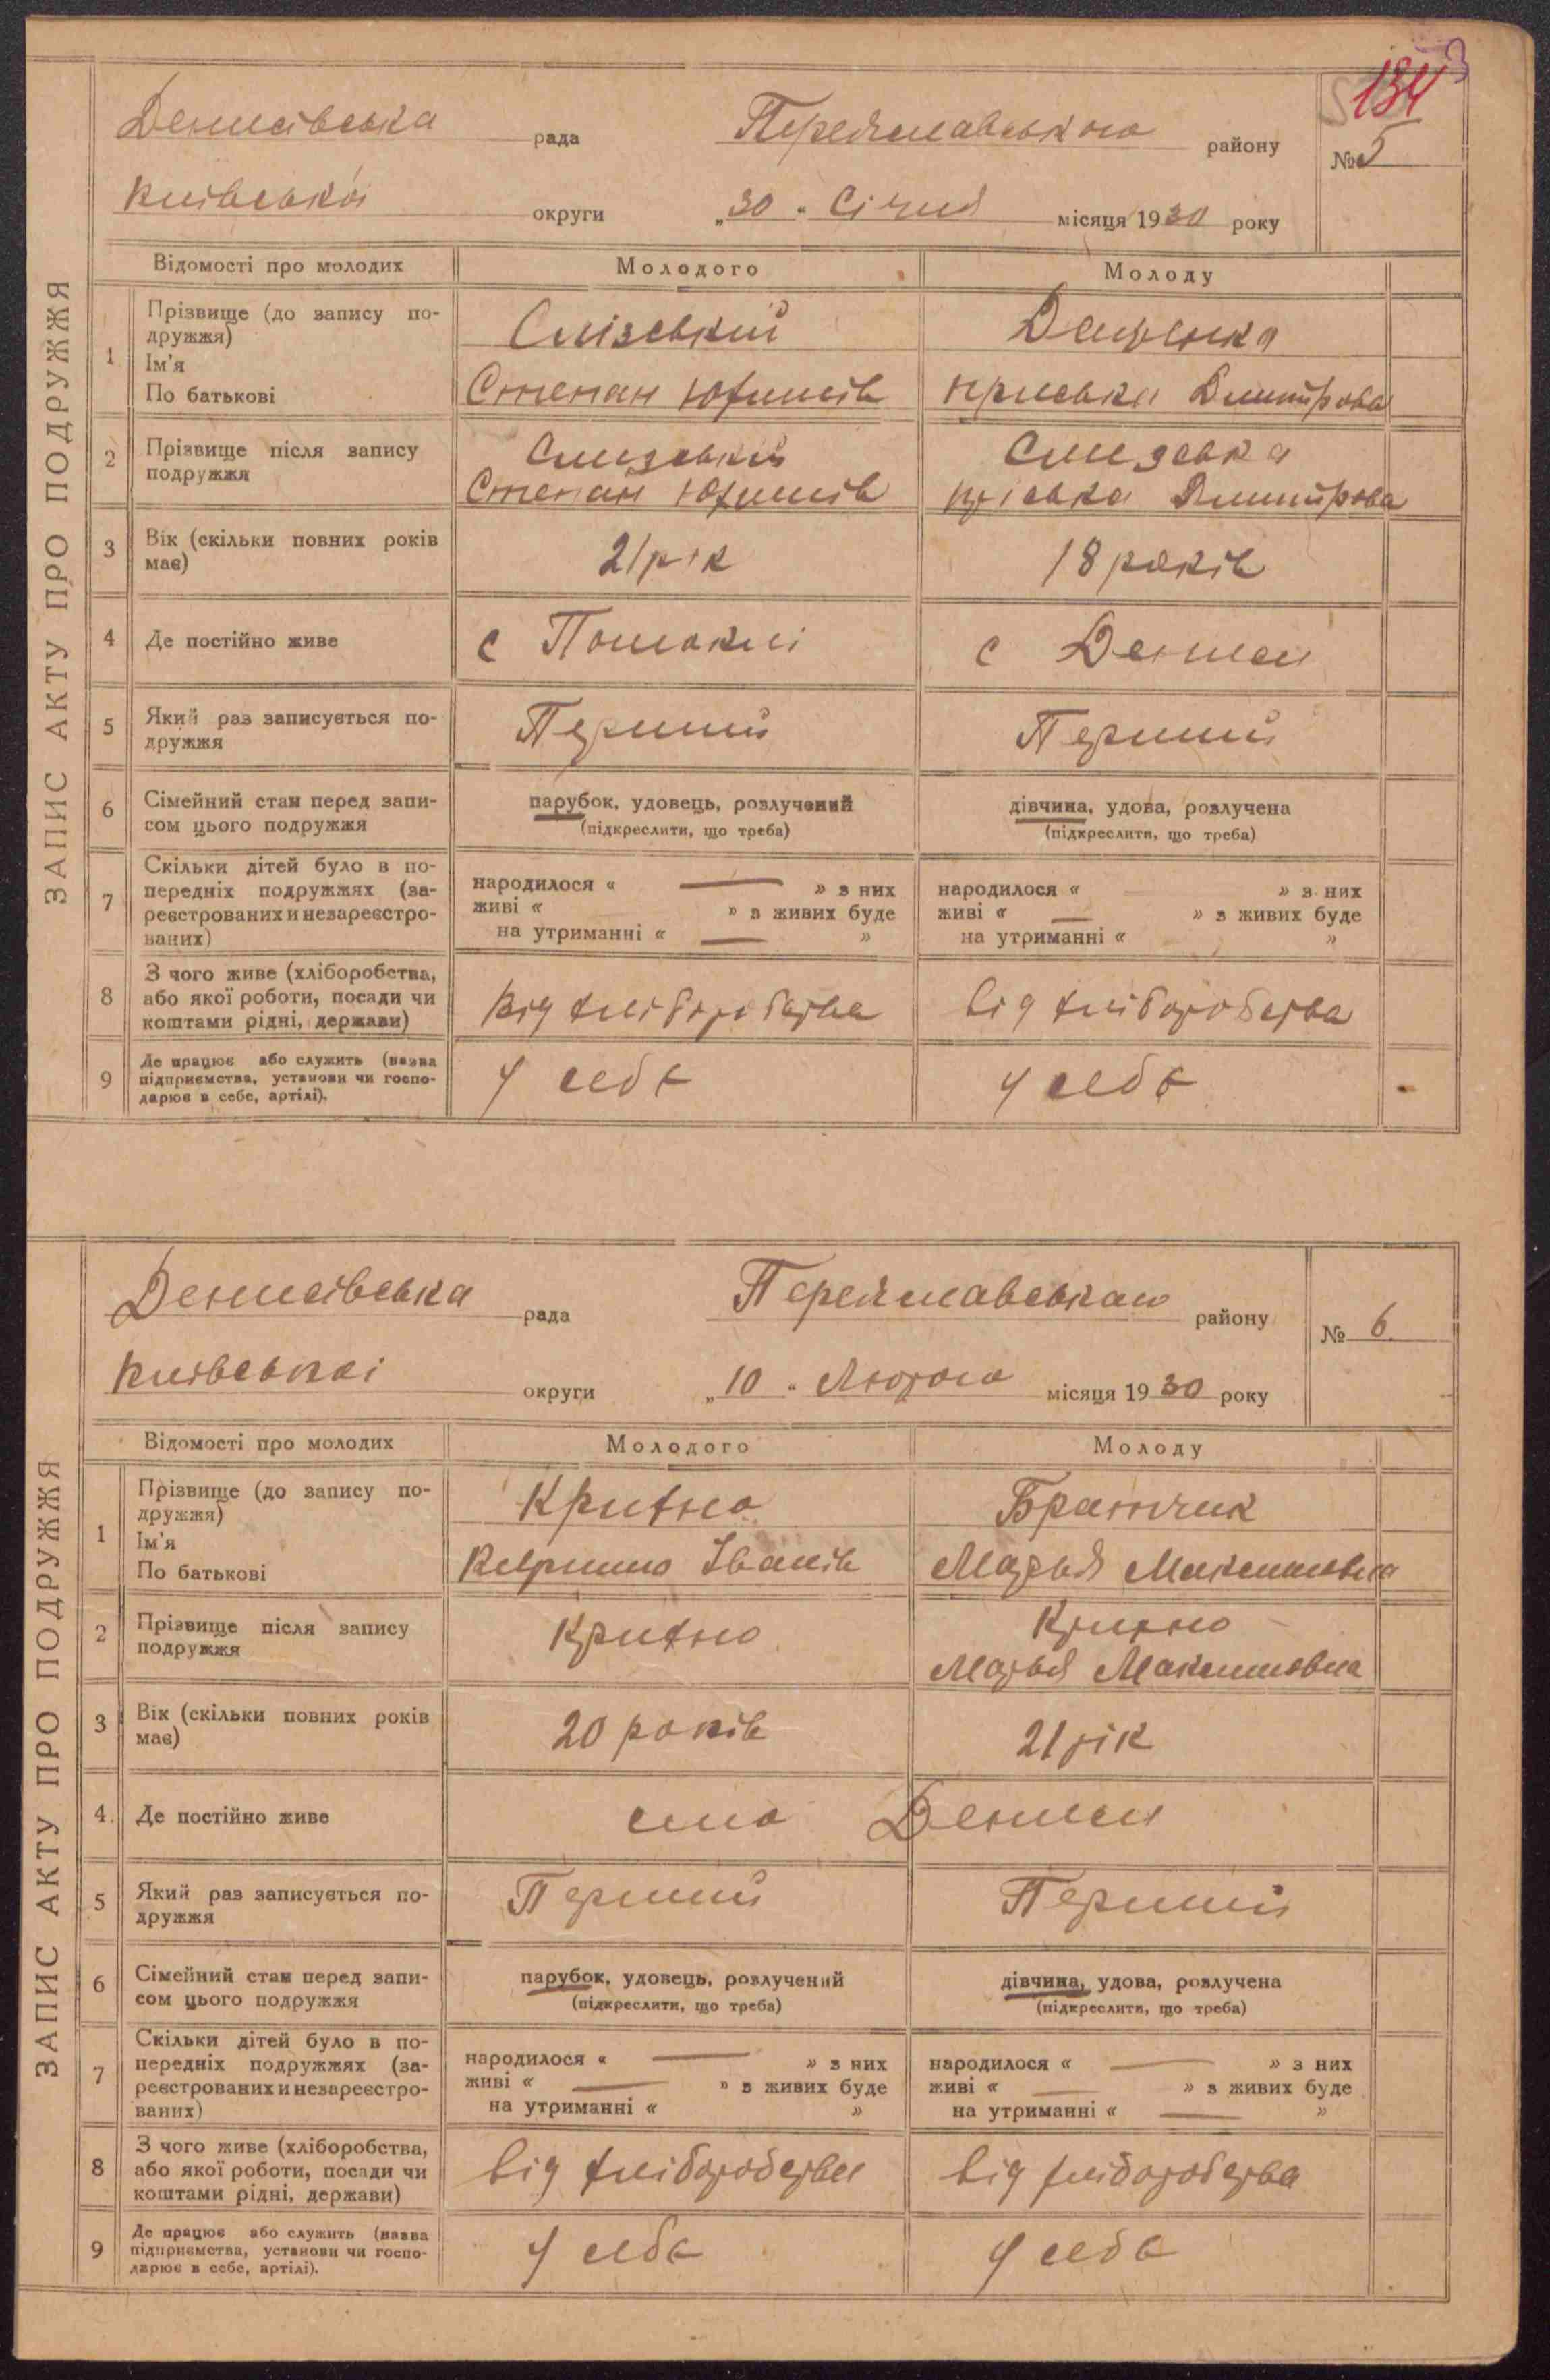 134
Денисівська рада Переяславського району № 5
Київська округи „30“ Січня місяця 1930 року
ЗАПИС АКТУ ПРО ПОДРУЖЖЯ
Відомості про молодих Молодого Молоду
1 Прізвище (до запису подружжя) Слізський
Ім'я
По батькові Степан Юхимів Приська Дмитрова
2 Прізвище після запису подружжя Слизський Слизська
Степан Юхимів Пріська Дмитрова
3 Вік (скільки повних років має) 21 рік 18 років
4 Де постійно живе с Помоклі с Дениси
5 Який раз записується подружжя Перший Перший
6 Сімейний стан перед записом цього подружжя парубок, удовець, розлучений дівчина, удова, розлучена
(підкреслити, що треба) (підкреслити, що треба)
7 Скільки дітей було в попередніх подружжях (зареєстрованих и незареєстрованих) народилося « — » з них народилося « » з них
живі « » з живих буде живі « — » з живих буде
на утриманні « — » на утриманні « »
8 З чого живе (хліборобства, або якої роботи, посади чи коштами рідні, держави) Від хліборобства від хліборобства
9 Де працює або служить (назва підприємства, установи чи господарює в себе, артілі). У себе у себе
Денисівська рада Переяславського району № 6
Київської округи „10“ Лютого місяця 1930 року
ЗАПИС АКТУ ПРО ПОДРУЖЖЯ
Відомості про молодих Молодого Молоду
1 Прізвище (до запису подружжя) Крихно Братчик
Ім'я
По батькові Кирило Іванів Марья Максимовна
2 Прізвище після запису подружжя Крихно Крихно
Марья Максимовна
3 Вік (скільки повних років має) 20 років 21 рік
4. Де постійно живе село Дениси
5 Який раз записується подружжя Перший Перший
6 Сімейний стан перед записом цього подружжя парубок, удовець, розлучений дівчина, удова, розлучена
(підкреслити, що треба) (підкреслити, що треба)
7 Скільки дітей було в попередніх подружжях (зареєстрованих и незареєстрованих) народилося « — » з них народилося « — » з них
живі « — » з живих буде живі « — » з живих буде
на утриманні « » на утриманні « — »
8 З чого живе (хліборобства, або якої роботи, посади чи коштами рідні, держави) від хліборобства від хліборобства
9 Де працює або служить (назва підприємства, установи чи господарює в себе, артілі). У себе У себе